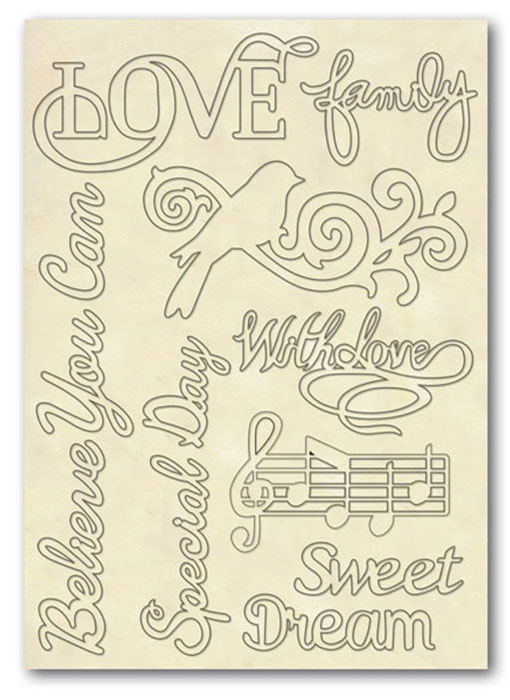 LOVE
family
Believe You Can
Special Day
With Love
Sweet
Dream